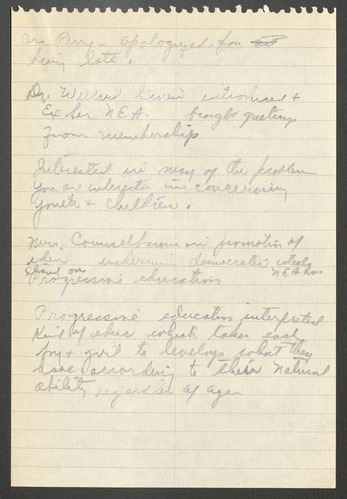 Perry - apologized for
being late.
Dr. Willard Given introduced +
Ex her N.E.A. brought greetings
from membership
Interested in many of the problem
you are interested in concerning
youth + children.
Mrs. in promotion of
democratic ideals
Stand on N E A has
Progressive education
Progressive education interpreted
Kind of educ which takes each
boy + girl to develops what they
have according to their natural
ability regardless of age